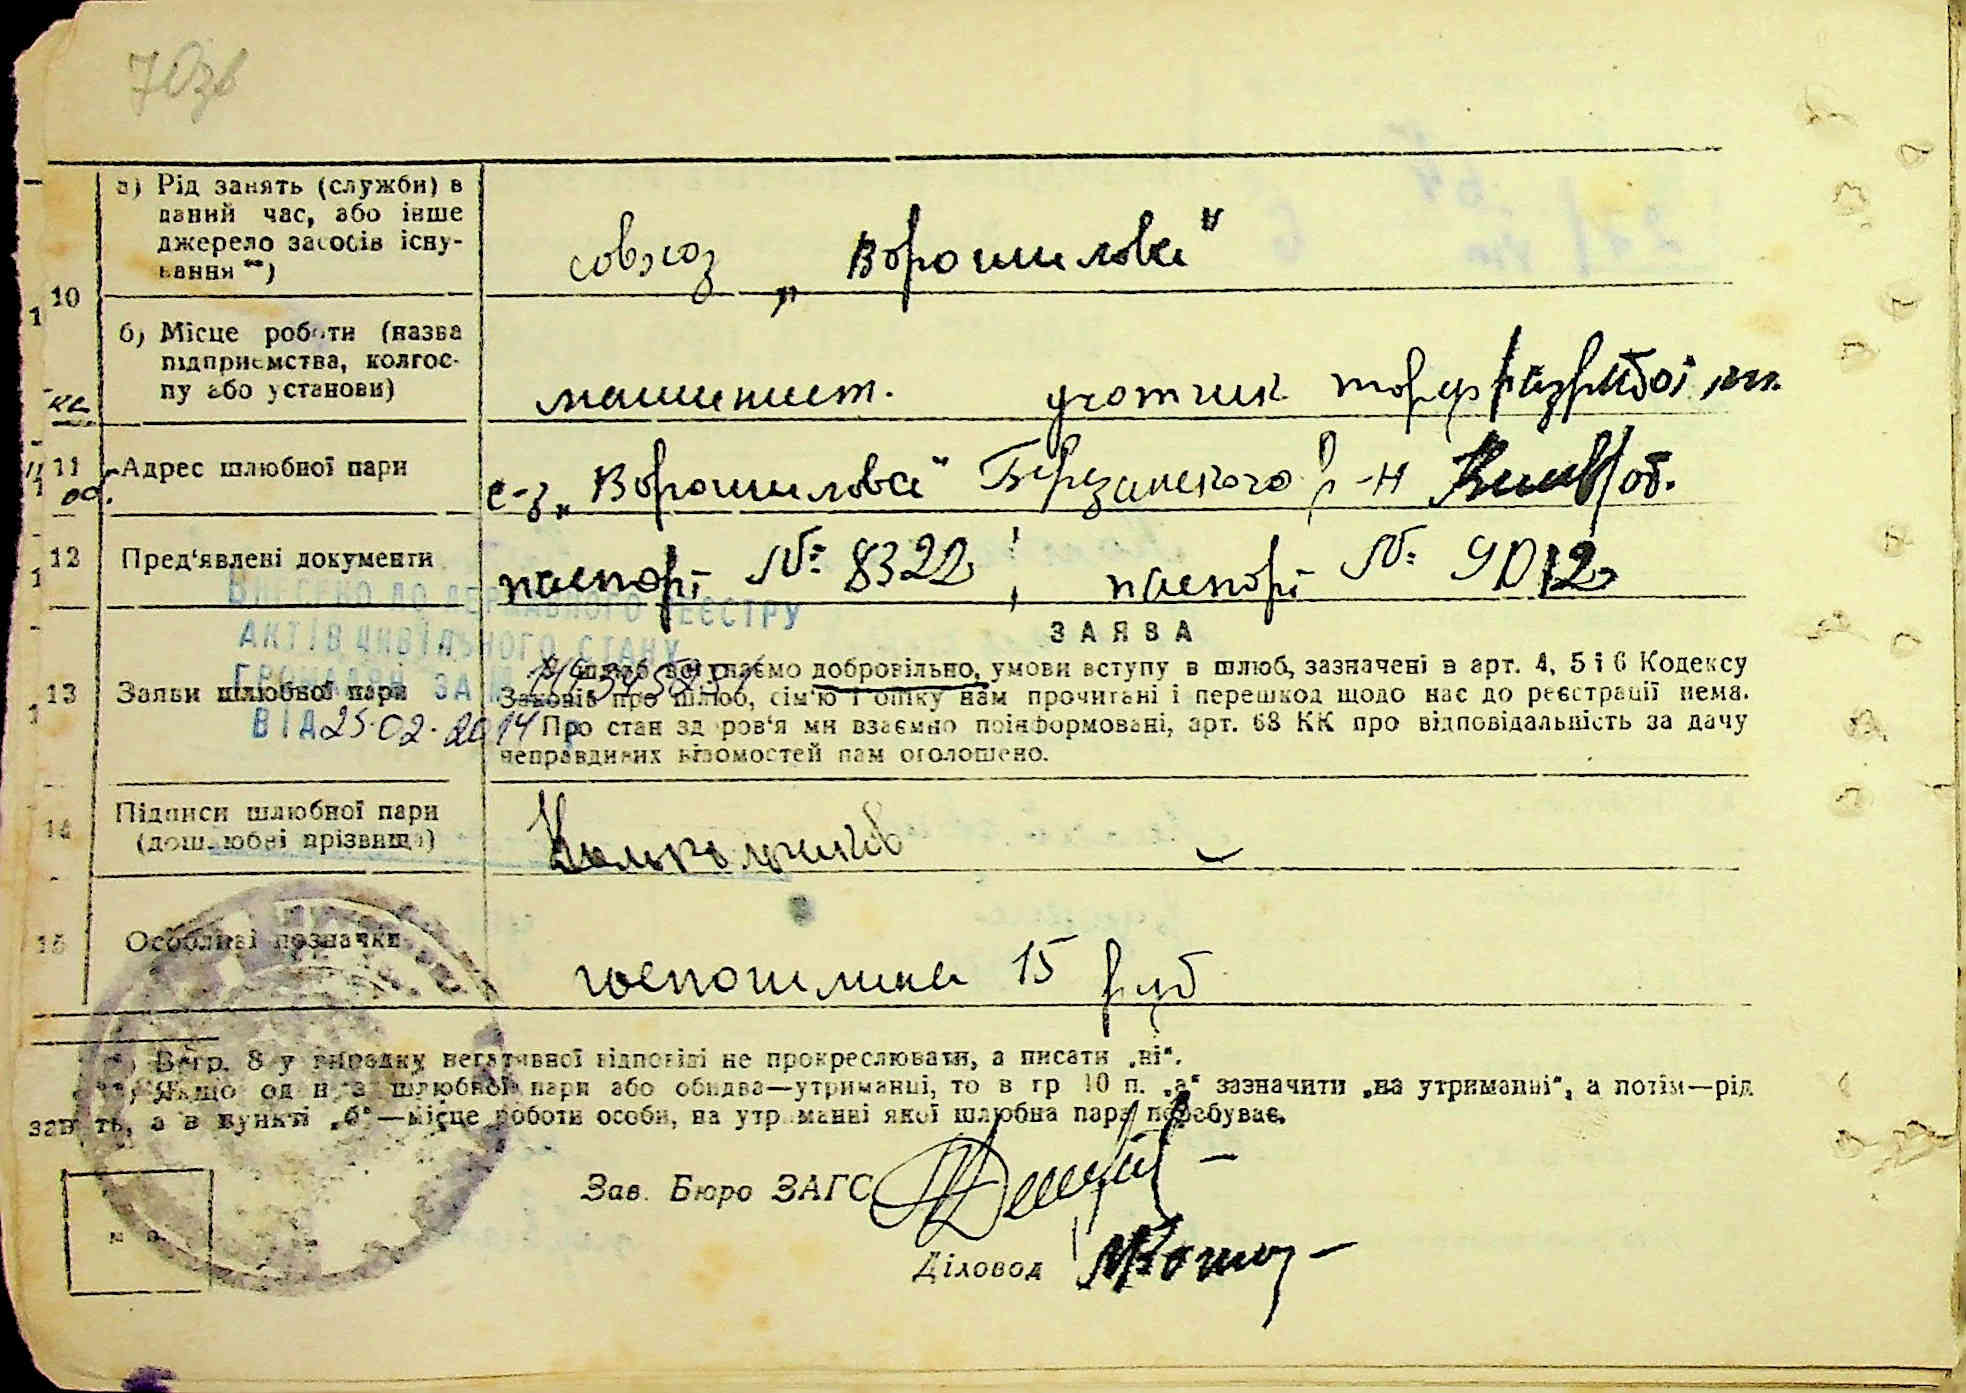 70зв
а) Рід занять (служби) в
даний час, або інше
джерело засобів існу-
вання **)
совхоз „Ворошилова"
10
б) Місце роботи (назва
підприємства, колгос-
пу або установи)
машинист. учотчик
11 Адрес шлюбної пари
с-з „Ворошилова" Березанского р-н Киев/об.
12 Пред'явлені документи
паспорт №: 8322; паспорт №: 9012
ВНЕСЕНО ДО ДЕРЖАВНОГО РЕЄСТРУ
АКТІВ ЦИВІЛЬНОГО СТАНУ
ГРОМАДЯН ЗА №
ВІД 25.02.2014
13 Заяви шлюбної пари
ЗАЯВА
В шлюб вступаємо добровільно, умови вступу в шлюб, зазначені в арт. 4, 5 і 6 Кодексу
Законів про шлюб, сім'ю і опіку нам прочитані і перешкод щодо нас до реєстрації нема.
Про стан здоров'я ми взаємно поінформовані, арт. 68 КК про відповідальність за дачу
неправдивих відомостей нам оголошено.
14 Підписи шлюбної пари
(дошлюбні прізвища)
15 Особливі позначки
госпошлина 15 руб
*) В гр. 8 у випадку негативної відповіді не прокреслювати, а писати „ні".
**) Якщо один з шлюбної пари або обидва—утриманці, то в гр 10 п. „а" зазначити „на утриманні", а потім—рід
занять, а в пункті „б"—місце роботи особи, на утриманні якої шлюбна пара перебуває.
Зав. Бюро ЗАГС
Діловод
м п